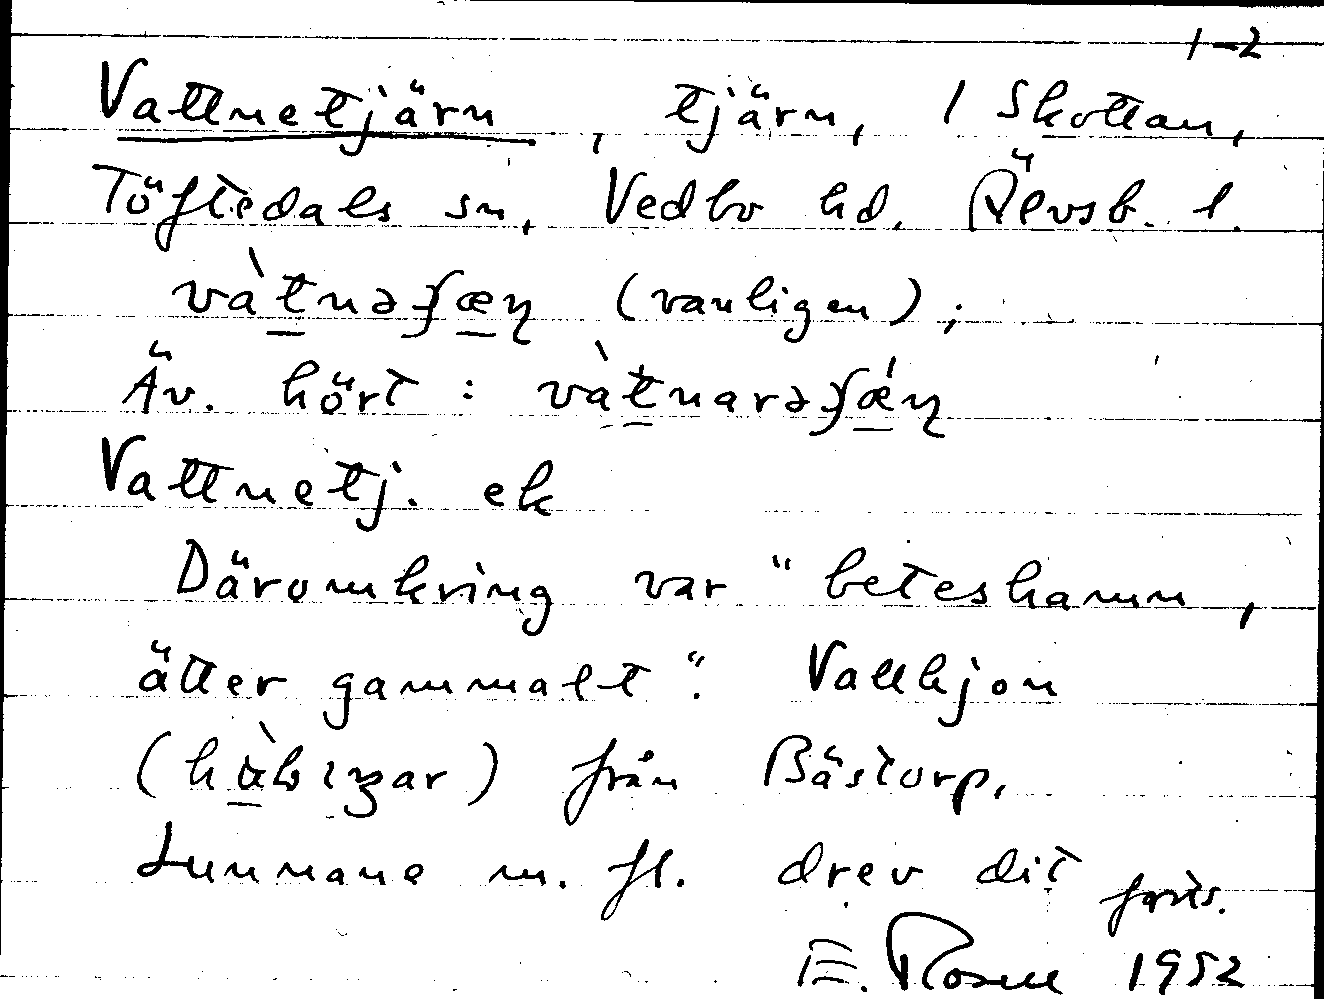 1-2
Vattnetjärn, tjärn, / Skottan,
Töftedals sn, Vedbo hd, Älvsb. l.
và̀tnəʃæɳ (vanligen);
Äv. hört: vàtnarəʃǽɳ
Vattnetj. ek
Däromkring var "beteshamn,
ätter gammalt". Vallhjon
från Bästorp,
Lunnane m. fl. drev dit
E. Rosell 1952